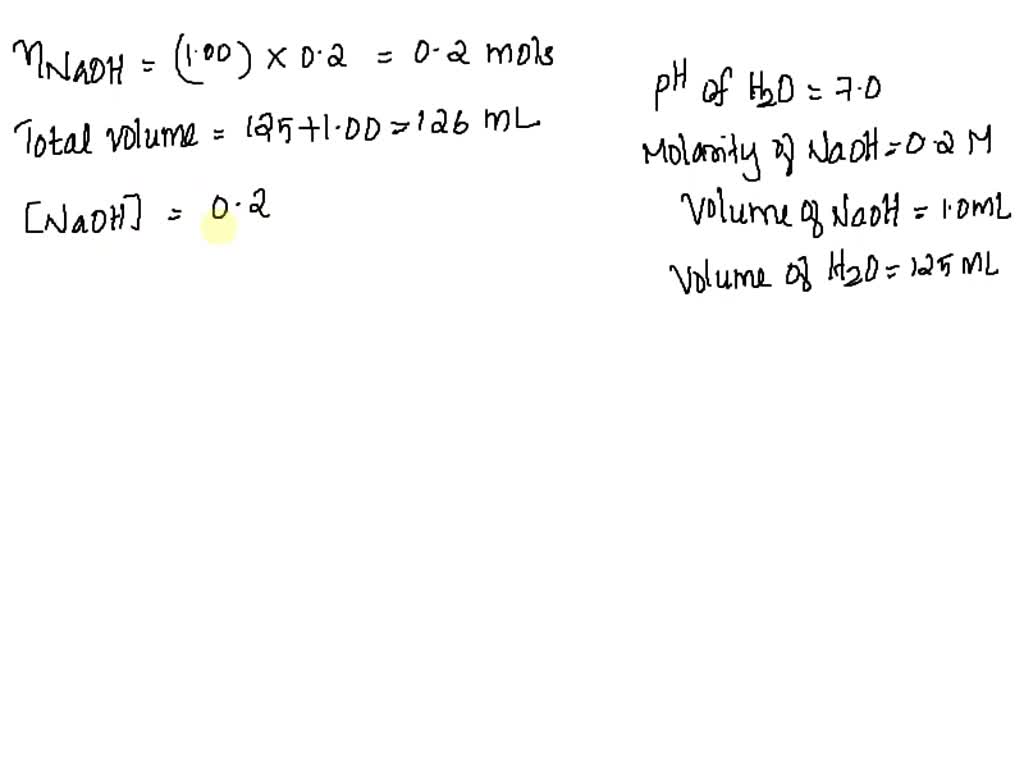 nNaOH = (1.00) × 0.2 = 0.2 mols
Total volume = 125+1.00 = 126 mL
[NaOH] = 0.2
pH of H2O = 7.0
Molarity of NaOH = 0.2 M
Volume of NaOH = 1.0mL
Volume of H2O = 125 mL